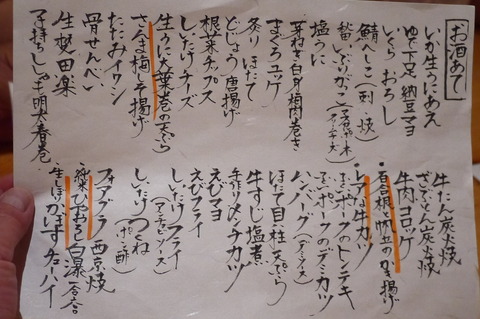 お酒あて
いか生うにあえ
ゆで下足 納豆マヨ
いくら おろし
鯖へしこ(刺・焼)
塩うに
芽ねぎ白身梅肉巻き
まぐろユッケ
炙り ほたて
どじょう 唐揚げ
根菜チップス
しいたけチーズ
生うに大葉巻の天ぷら
さんま梅しそ揚げ
たたみイワシ
骨せんべい
生麩田楽
子持ちししゃも明太春巻
牛たん炭火焼
ざぶとん炭火焼
牛肉コロッケ
百合根と帆立のかき揚げ
レアな牛カツ
ポークのトンテキ
ポークのデミカツ
ハンバーグ(デミソース)
ほたて貝柱天ぷら
牛すじ塩煮
手作りメンチカツ
えびマヨ
えびフライ
しいたけフライ
しいたけつくね
フォアグラ 西京焼
純米ひやおろし 白瀑
生しぼりかぼすチューハイ